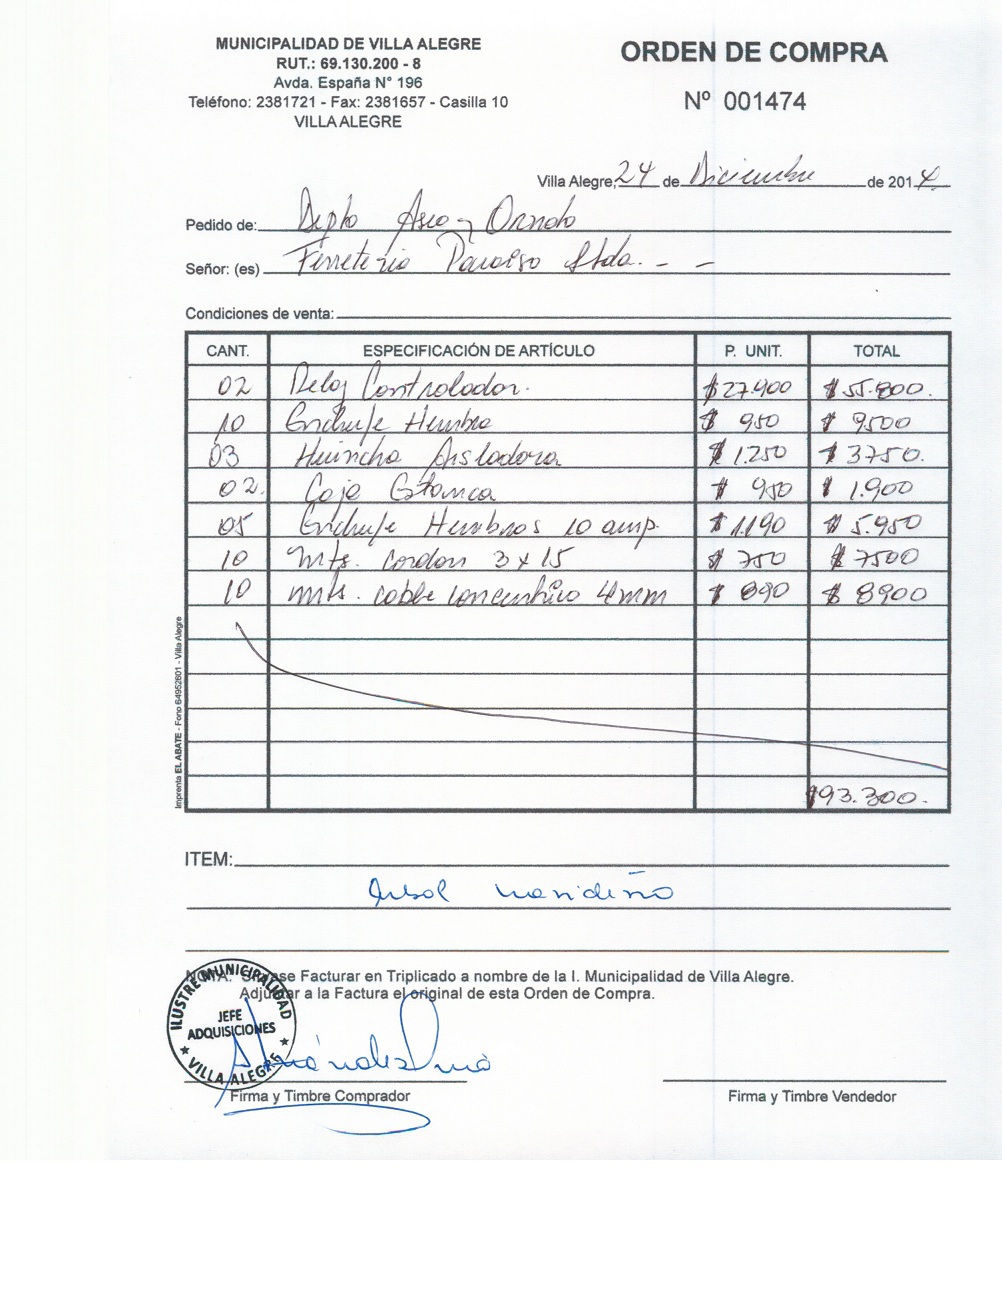 MUNICIPALIDAD DE VILLA ALEGRE
RUT.: 69.130.200 - 8
Avda. España N° 196
Teléfono: 2381721 - Fax: 2381657 - Casilla 10
VILLA ALEGRE
ORDEN DE COMPRA
Nº 001474
Villa Alegre, 24 de Diciembre de 2014
Pedido de: Depto Aseo y Ornato
Señor: (es) Ferreteria Paraiso Ltda. - -
Condiciones de venta:
CANT. ESPECIFICACIÓN DE ARTÍCULO P. UNIT. TOTAL
02 Reloj Controlador. $27.900 $55.800.
10 Enchufe Hembra $ 950 $ 9500
03 Huincha Aisladora $ 1.250 $ 3750.
02. Caja Estanca $ 950 $ 1.900
05 Enchufe Hembras 10 amp. $ 1.190 $ 5.950
10 Mts. Cordon 3 x 15 $ 750 $ 7500
10 mts. cable concentrico 4mm $ 890 $ 8900
$93.300.
Imprenta EL ABATE - Fono 64952601 - Villa Alegre
ITEM:
Arbol navideño
NOTA: Sírvase Facturar en Triplicado a nombre de la I. Municipalidad de Villa Alegre.
Adjuntar a la Factura el original de esta Orden de Compra.
ILUSTRE MUNICIPALIDAD
JEFE
ADQUISICIONES
★ VILLA ALEGRE ★
Firma y Timbre Comprador
Firma y Timbre Vendedor